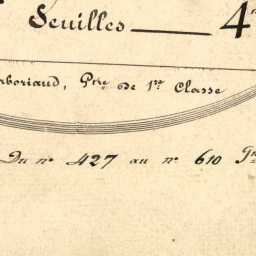 Feuilles 4
arboriaud, Ptre de 1re Classe
Du nº 427 au nº 610